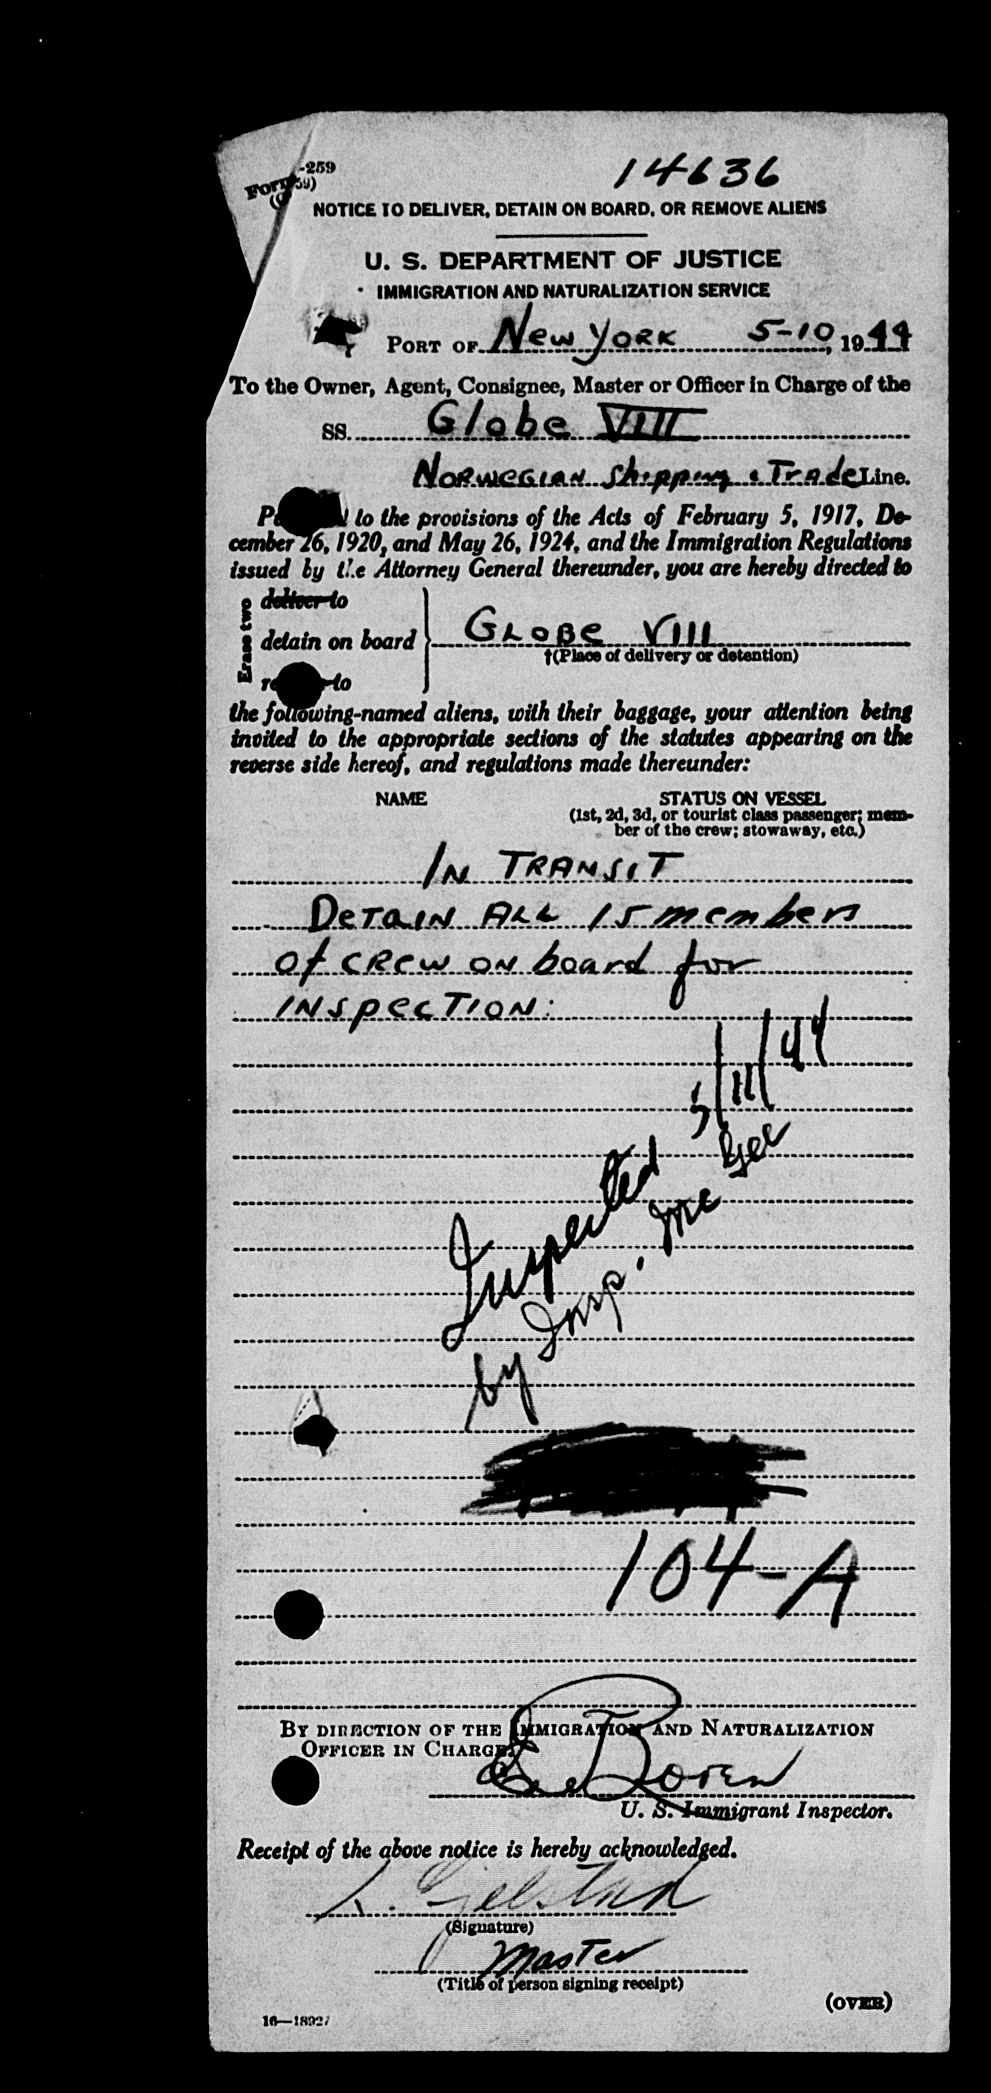 14636
Form -259
NOTICE TO DELIVER, DETAIN ON BOARD, OR REMOVE ALIENS
U. S. DEPARTMENT OF JUSTICE
IMMIGRATION AND NATURALIZATION SERVICE
PORT OF New York 5-10, 1944
To the Owner, Agent, Consignee, Master or Officer in Charge of the
SS. Globe VIII
Norwegian Shipping & Trade Line.
to the provisions of the Acts of February 5, 1917, De-
cember 26, 1920, and May 26, 1924, and the Immigration Regulations
issued by the Attorney General thereunder, you are hereby directed to
Erase two
deliver to
detain on board } Globe VIII
†(Place of delivery or detention)
to
the following-named aliens, with their baggage, your attention being
invited to the appropriate sections of the statutes appearing on the
reverse side hereof, and regulations made thereunder:
NAME STATUS ON VESSEL
(1st, 2d, 3d, or tourist class passenger; mem-
ber of the crew; stowaway, etc.)
In Transit
Detain All 15 members
of crew on board for
inspection:
Inspected 5/11/44
by Insp. McGee
104-A
BY DIRECTION OF THE IMMIGRATION AND NATURALIZATION
OFFICER IN CHARGE:
U. S. Immigrant Inspector.
Receipt of the above notice is hereby acknowledged.
L. Gjelstad
(Signature)
Master
(Title of person signing receipt)
(OVER)